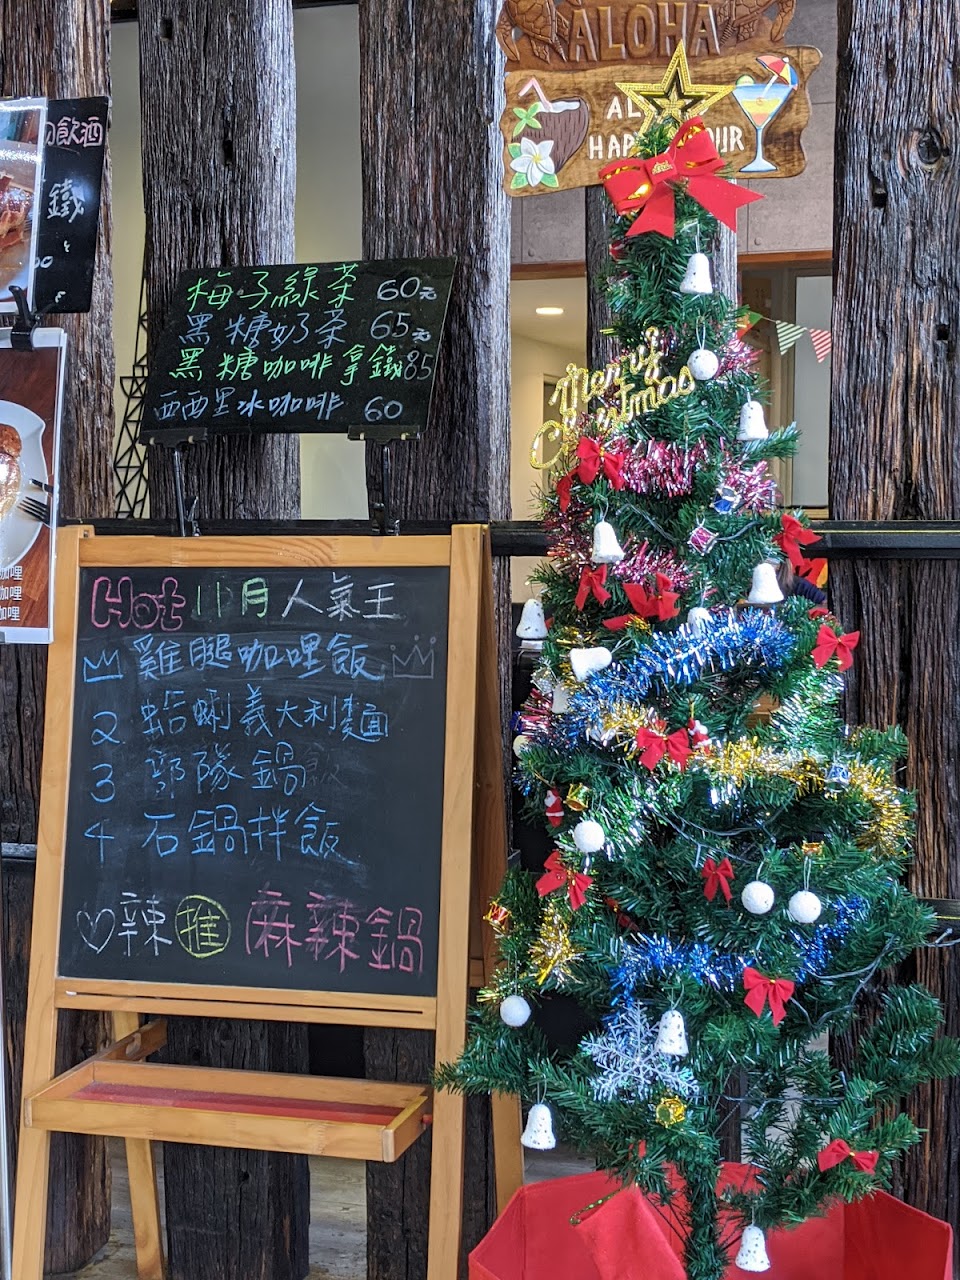 ALOHA
AL
HAP OUR
飲酒
鐵
梅子綠茶 60元
黑糖奶茶 65元
黑糖咖啡拿鐵 85
西西里冰咖啡 60
Merry
Christmas
咖哩
咖哩
咖哩
Hot 11月人氣王
雞腿咖哩飯
2 蛤蜊義大利麵
3 部隊鍋
4 石鍋拌飯
辣 推 麻辣鍋